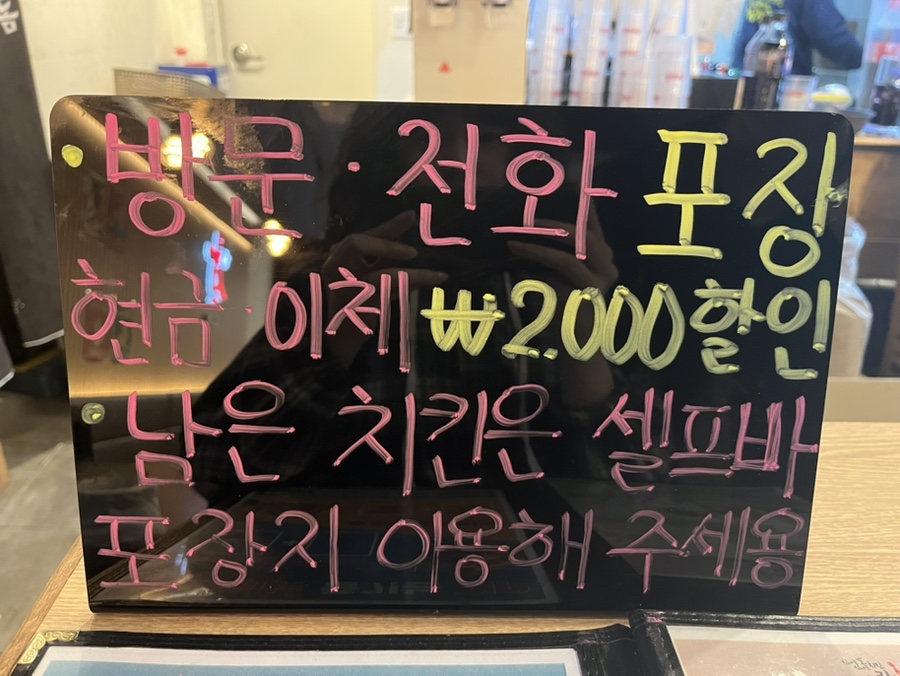 방문·전화 포장
현금·이체 ₩2.000 할인
남은 치킨은 셀프바
포장지 이용해 주세용